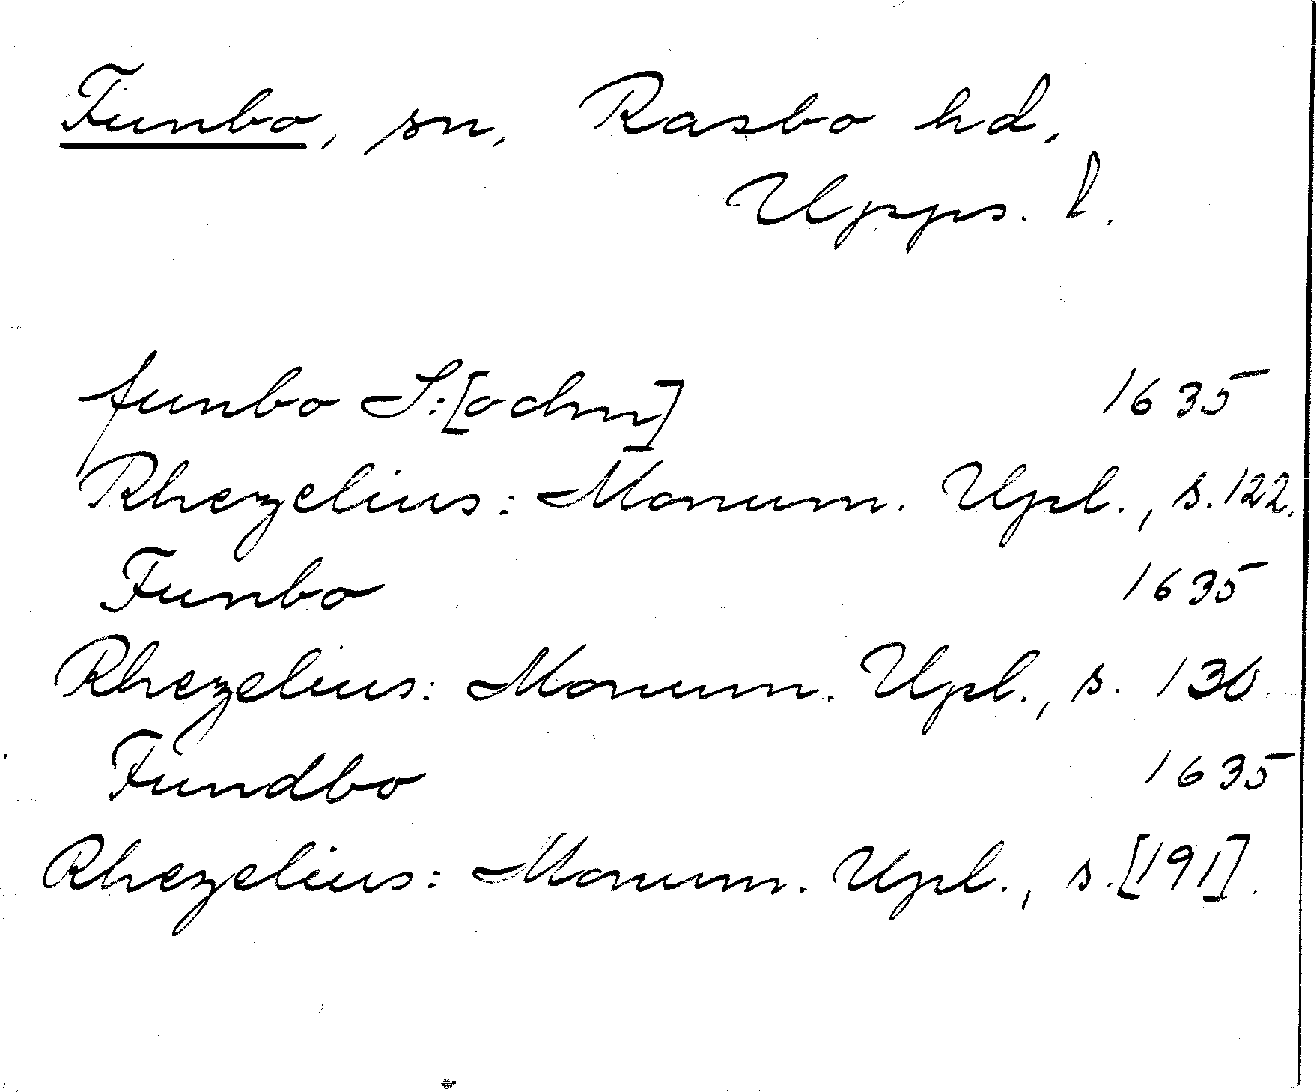 Funbo, sn, Rasbo hd,
Upps. l.
funbo S:[ochn] 1635
Rhezelius: Monum. Upl., s. 122.
Funbo 1635
Rhezelius: Monum. Upl., s. 130
Fundbo 1635
Rhezelius: Monum. Upl., s. [191].